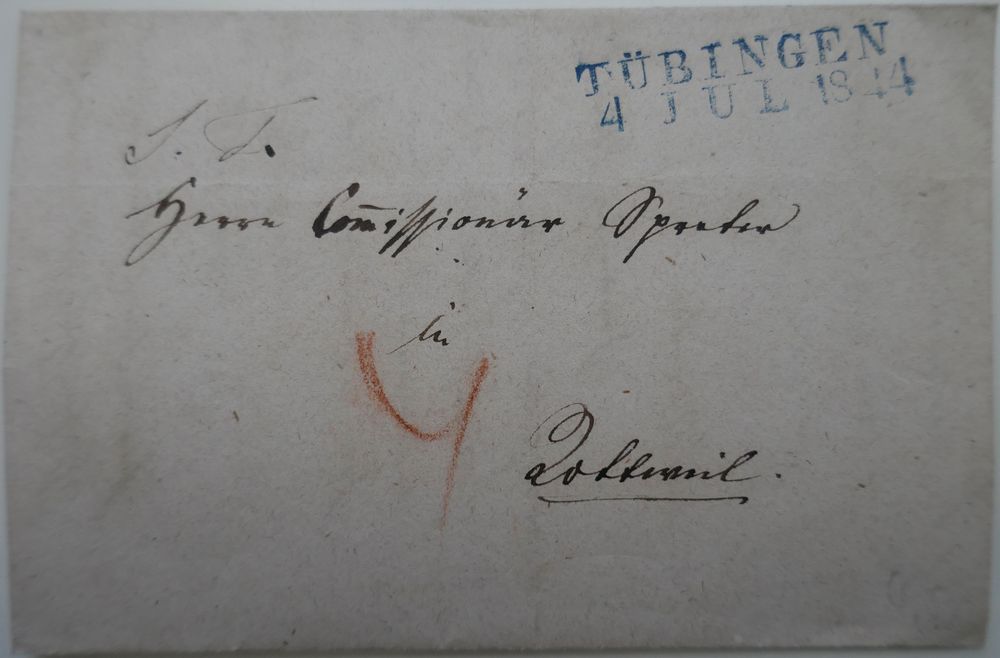 TÜBINGEN
4 JUL 1844
S. T.
Herrn Com̅issionär Spreter
in
4
Rottweil.